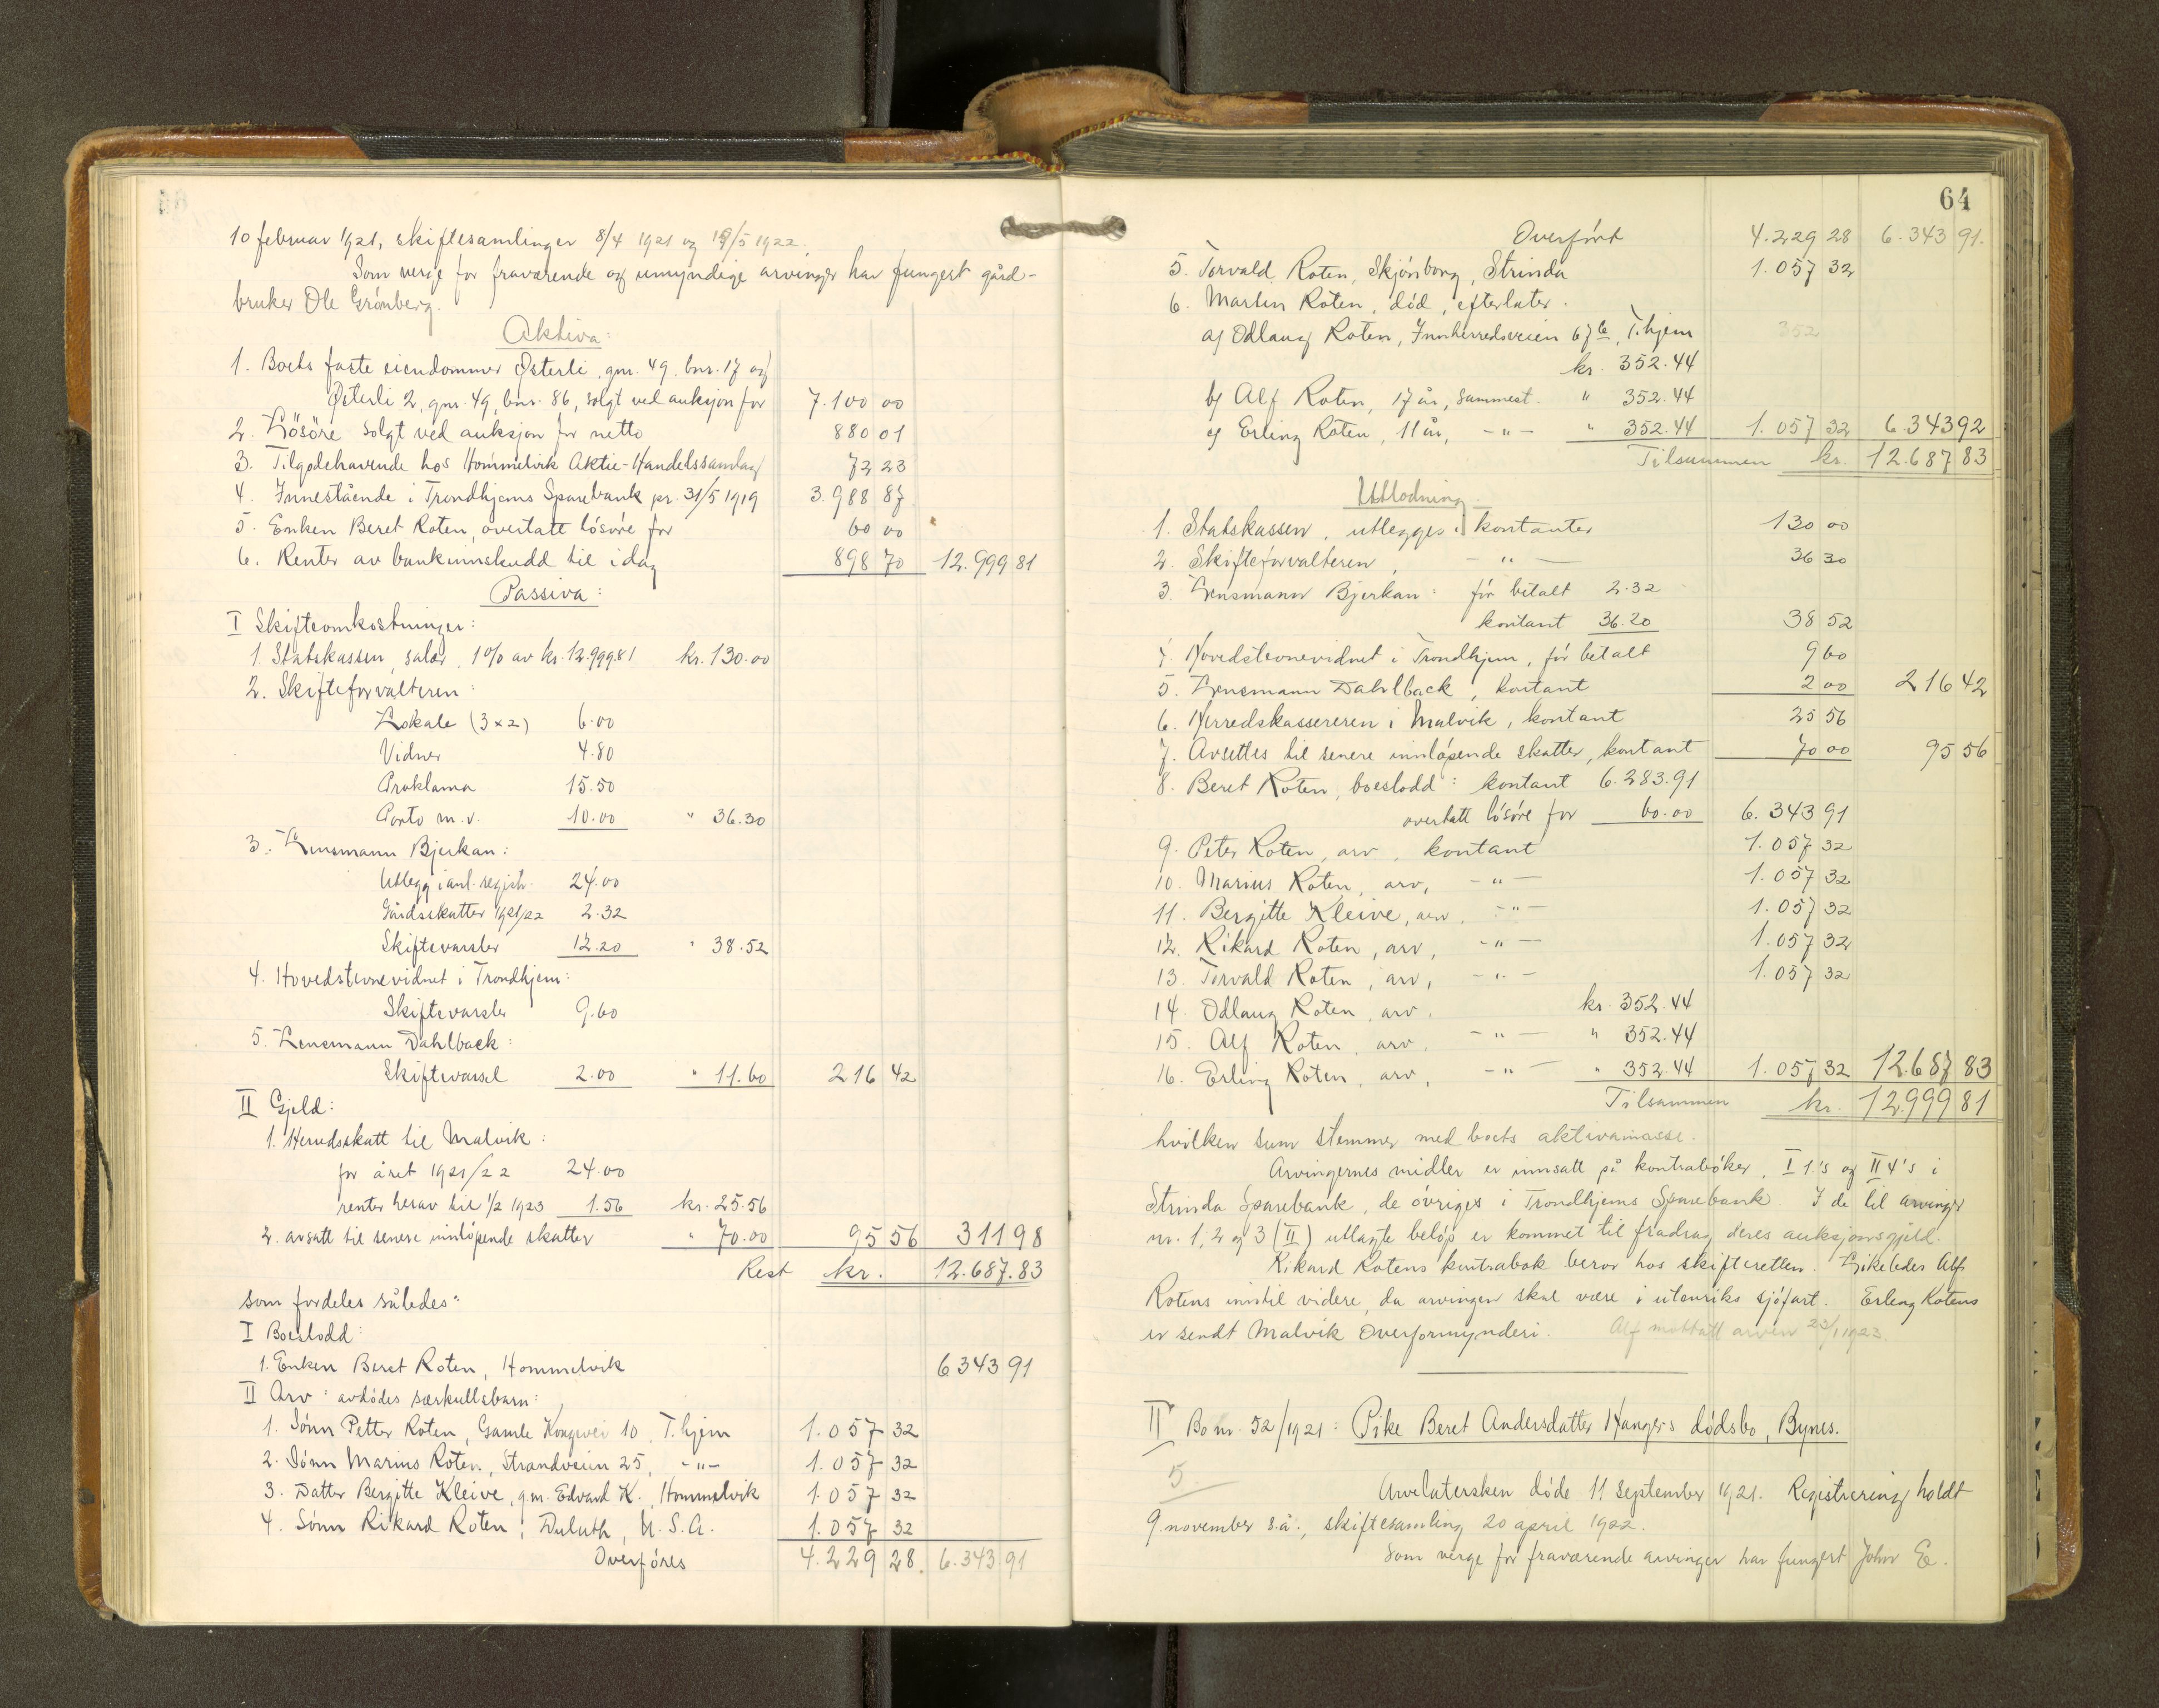 10 februar 1921, skiftesamlinger 8/4 1921 og 19/5 1922.
Som verge for fraværende og umyndige arvinger har fungert gård-
bruker Ole Grönberg.
Aktiva:
1. Boets faste eiendommer Østerli, gnr. 49, bnr. 17 og
Østerli 2, gnr. 49, bnr. 86, solgt ved auksjon for 7.100 00
2. Lösöre solgt ved auksjon for netto 880 01
3. Tilgodehavende hos Hommelvik Aktie-Handelssamlag 72 23
4. Innestående i Trondhjems Sparebank pr. 31/5 1919 3.988 87
5. Enken Beret Roten, overtatt lösöre for 60 00
6. Renter av bankinnskudd til idag 898 70 12.999 81
Passiva:
I Skifteomkostninger:
1. Statskassen, salær, 1% av kr. 12.999.81 kr. 130.00
2. Skifteforvalteren:
Lokale (3x2) 6.00
Vidner 4.80
Proklama 15.50
Porto m.v. 10.00 " 36.30
3. Lensmann Bjerkan:
Utlegg i anl. registr. 24.00
Gårdsskatter 1921/22 2.32
Skiftevarsler 12.20 " 38.52
4. Hovedstevnevidnet i Trondhjem:
Skiftevarsler 9.60
5. Lensmann Dahlback:
Skiftevarsel 2.00 " 11.60 216 42
II Gjeld:
1. Herredsskatt til Malvik:
for året 1921/22 24.00
renter herav til 1/2 1923 1.56 kr. 25.56
2. avsatt til senere innlöpende skatter " 70.00 95 56 311 98
Rest kr. 12.687.83
som fordeles således:
I Boeslodd:
1. Enken Beret Roten, Hommelvik 6 343 91
II Arv: avdödes særkullsbarn:
1. Sönn Petter Roten, Gamle Kongevei 10, T.hjem 1.057 32
2. Sönn Marius Roten, Strandveien 25, -"- 1.057 32
3. Datter Bergitte Kleive, g.m. Edvard K., Hommelvik 1.057 32
4. Sönn Rikard Roten, Duluth, U.S.A. 1.057 32
Overföres 4.229 28 6.343 91
64
Overfört 4.229 28 6.343 91.
5. Torvald Roten, Skjönborg, Strinda 1.057 32
6. Martin Roten, död, efterlater.
a) Odlaug Roten, Innherredsveien 67b, T.hjem 352
kr. 352.44
b) Alf Roten, 17 år, sammest. " 352.44
c) Erling Roten, 11 år, -"- " 352.44 1.057 32 6 343 92
Tilsammen kr. 12.687 83
Utlodning.
1. Statskassen, utlegges i kontanter 130 00
2. Skifteforvalteren, -"- 36 30
3. Lensmann Bjerkan: för betalt 2.32
kontant 36.20 38 52
4. Hovedstevnevidnet i Trondhjem, för betalt 9 60
5. Lensmann Dahlback, kontant 2 00 216 42
6. Herredskassereren i Malvik, kontant 25 56
7. Avsettes til senere innlöpende skatter, kontant 70 00 95 56
8. Beret Roten, boeslodd: kontant 6.283.91
overtatt lösöre for 60.00 6.343 91
9. Peter Roten, arv, kontant 1.057 32
10. Marius Roten, arv, -"- 1.057 32
11. Bergitte Kleive, arv, -"- 1.057 32
12. Rikard Roten, arv, -"- 1.057 32
13. Torvald Roten, arv, -"- 1.057 32
14. Odlaug Roten, arv, kr. 352.44
15. Alf Roten, arv, -"- " 352.44
16. Erling Roten, arv, -"- " 352.44 1.057 32 12.687 83
Tilsammen kr. 12.999 81
hvilken sum stemmer med boets aktivamasse.
Arvingernes midler er innsatt på kontraböker, I 1.'s og II 4's i
Strinda Sparebank, de övriges i Trondhjems Sparebank. I de til arvinger
nr. 1, 2 og 3 (II) utlagte belöp er kommet til fradrag deres auksjonsgjeld.
Rikard Rotens kontrabok beror hos skifteretten. Likeledes Alf
Rotens inntil videre, da arvingen skal være i utenriks sjöfart. Erling Rotens
er sendt Malvik Overformynderi. Alf mottatt arven 23/1 1923.
II Bo nr. 52/1921: Pike Beret Andersdatter Hangers dödsbo, Bynes.
5
Arvelatersken döde 11 september 1921. Registrering holdt
9. november s.å., skiftesamling 20 april 1922.
Som verge for fraværende arvinger har fungert John E.